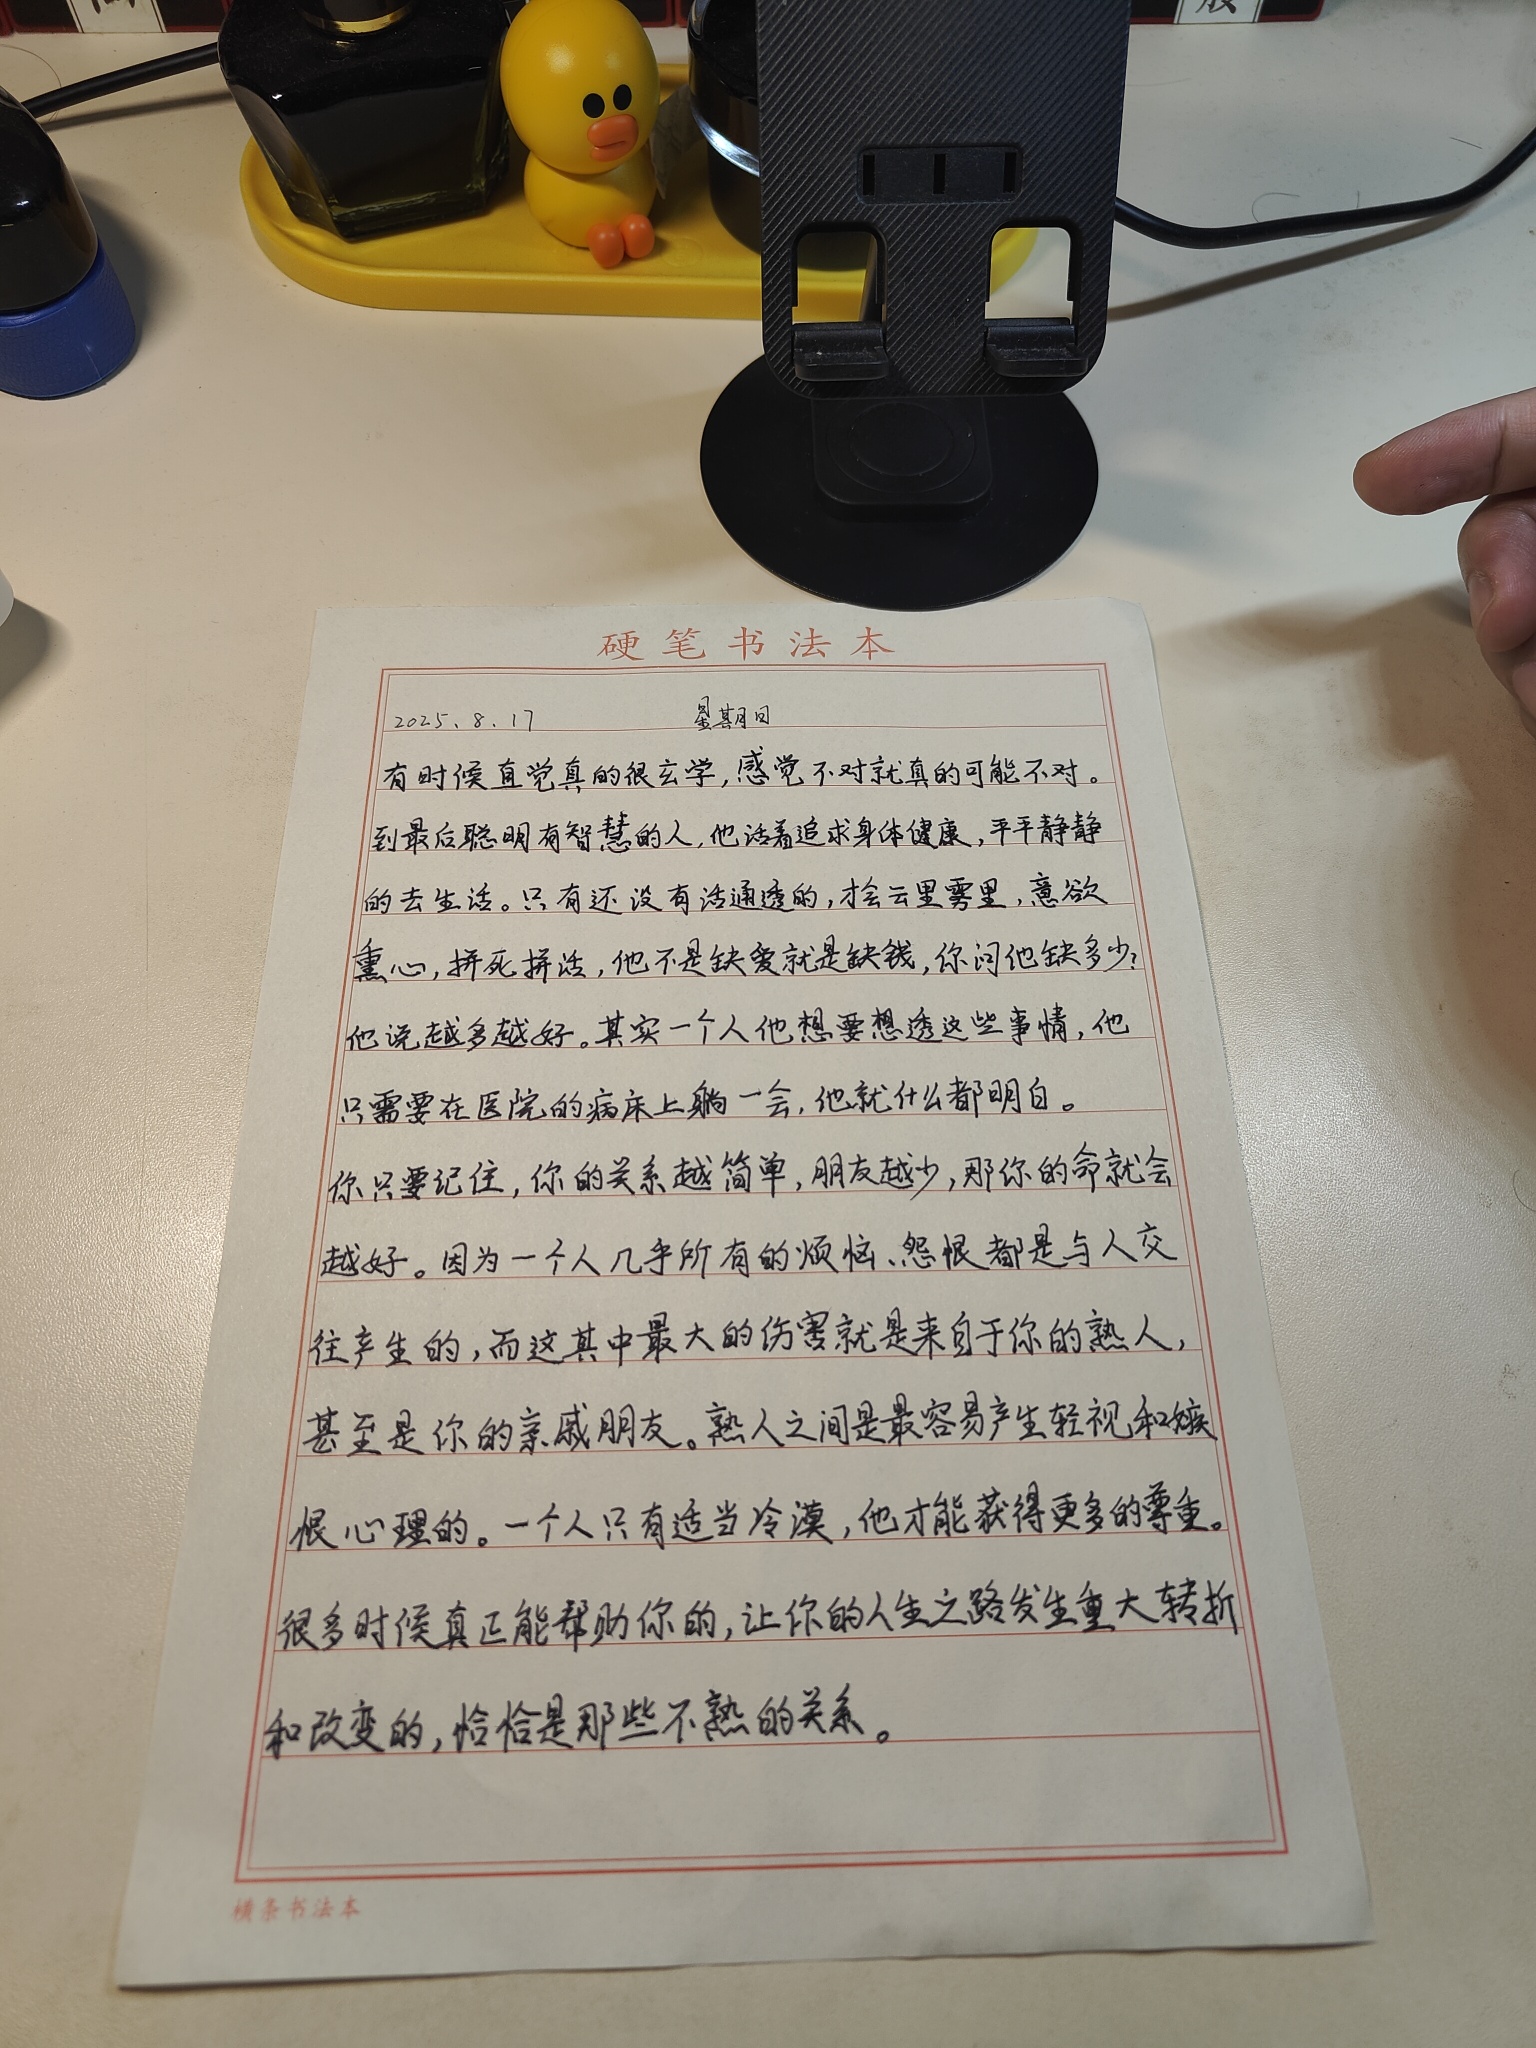 硬笔书法本
2025.8.17 星期日
有时候直觉真的很玄学,感觉不对就真的可能不对。
到最后聪明有智慧的人,他活着追求身体健康,平平静静
的去生活。只有还没有活通透的,才会云里雾里,意欲
熏心,拼死拼活,他不是缺爱就是缺钱,你问他缺多少?
他说越多越好。其实一个人他想要想透这些事情,他
只需要在医院的病床上躺一会,他就什么都明白。
你只要记住,你的关系越简单,朋友越少,那你的命就会
越好。因为一个人几乎所有的烦恼、怨恨都是与人交
往产生的,而这其中最大的伤害就是来自于你的熟人,
甚至是你的亲戚朋友。熟人之间是最容易产生轻视和嫉
恨心理的。一个人只有适当冷漠,他才能获得更多的尊重。
很多时候真正能帮助你的,让你的人生之路发生重大转折
和改变的,恰恰是那些不熟的关系。
横条书法本